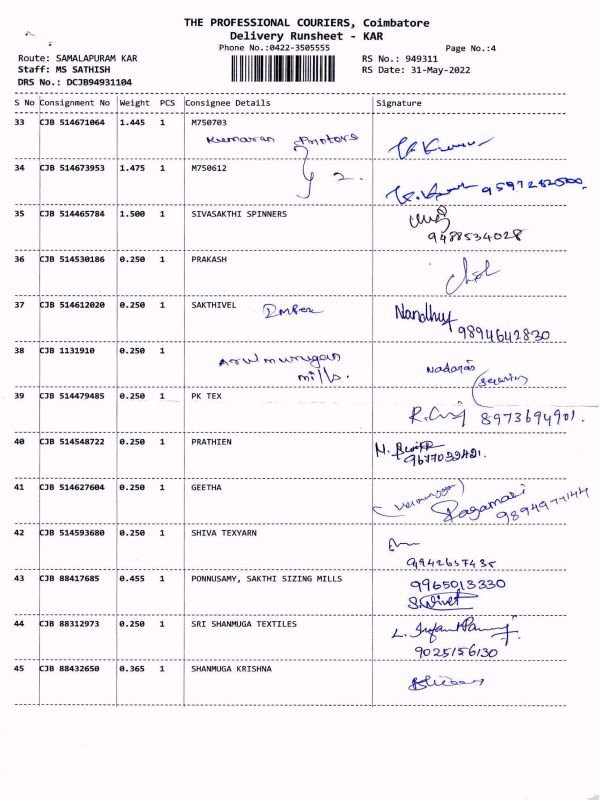 THE PROFESSIONAL COURIERS, Coimbatore
Delivery Runsheet - KAR
Phone No.:0422-3505555
Page No.:4
Route: SAMALAPURAM KAR
RS No.: 949311
Staff: MS SATHISH
RS Date: 31-May-2022
DRS No.: DCJB94931104
S No Consignment No Weight PCS Consignee Details Signature
33 CJB 514671064 1.445 1 M750703
Kumaran Printers
34 CJB 514673953 1.475 1 M750612
2.
9597282500
35 CJB 514465784 1.500 1 SIVASAKTHI SPINNERS
9488534028
36 CJB 514530186 0.250 1 PRAKASH
37 CJB 514612020 0.250 1 SAKTHIVEL
Nandhu
9894642830
38 CJB 1131910 0.250 1
Arulmurugan
mills.
39 CJB 514479485 0.250 1 PK TEX
8973694901.
40 CJB 514548722 0.250 1 PRATHIEN
9677039421.
41 CJB 514627604 0.250 1 GEETHA
42 CJB 514593680 0.250 1 SHIVA TEXYARN
9942657435
43 CJB 88417685 0.455 1 PONNUSAMY, SAKTHI SIZING MILLS
9965013330
44 CJB 88312973 0.250 1 SRI SHANMUGA TEXTILES
9025156130
45 CJB 88432650 0.365 1 SHANMUGA KRISHNA